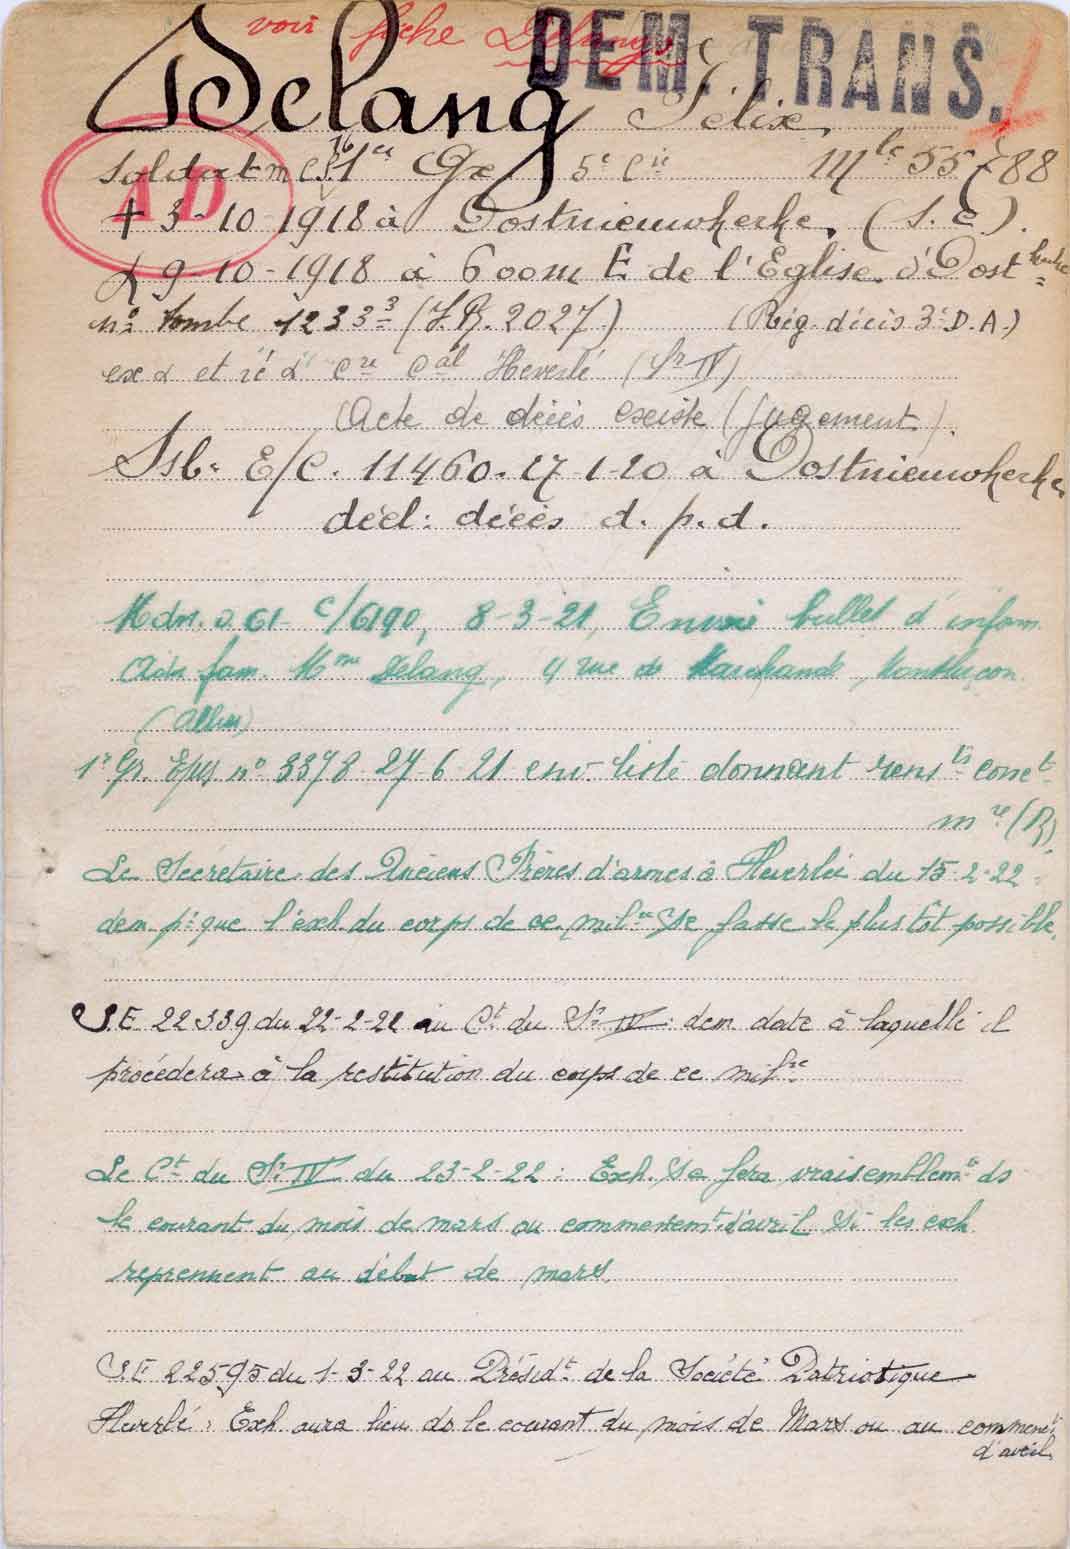 voir fiche Delange
DEM. TRANS.
Delang Félix
AD
Soldat mc 1er Ge 5e Cie Mle 55/88
+ 3-10-1918 à Oostnieuwkerke. (S.E).
9-10-1918 à 600m E de l'Eglise d'Oostkerke
no tombe 1233 3 (S.R. 2027) (Rég. décès 3e D.A.)
exd et ré d' Cre Cal Heverlé (Sr IV)
(Acte de décès existe (jugement).
Ssb: E/C. 11460. 17-1-20 à Oostnieuwkerke
décl: décès d. p. d.
Mdn. D. 61 C/6190, 8-3-21, Envoi bullet d'inform.
fam. Mme Delang, 4 rue de Marchande, Montluçon.
(Allier)
1r Gr. Epg no 3378 27-6-21 env. liste donnant rensts conct
mre (R).
Le Secrétaire des Anciens Frères d'armes à Heverlée du 15-2-22
dem. pr que l'exh. du corps de ce milre se fasse le plus tôt possible.
S.E 22339 du 22-2-22 au Ct du Sr IV: dem date à laquelle il
procédera à la restitution du corps de ce milre
Le Ct du Sr IV du 23-2-22: Exh. se fera vraisemblemt ds
le courant du mois de mars ou commencemt d'avril si les exh
reprennent au début de mars.
S.E 22595 du 1-3-22 au Présidt de la Société Patriotique
Heverlé: Exh aura lieu ds le courant du mois de Mars ou au commenct
d'avril.